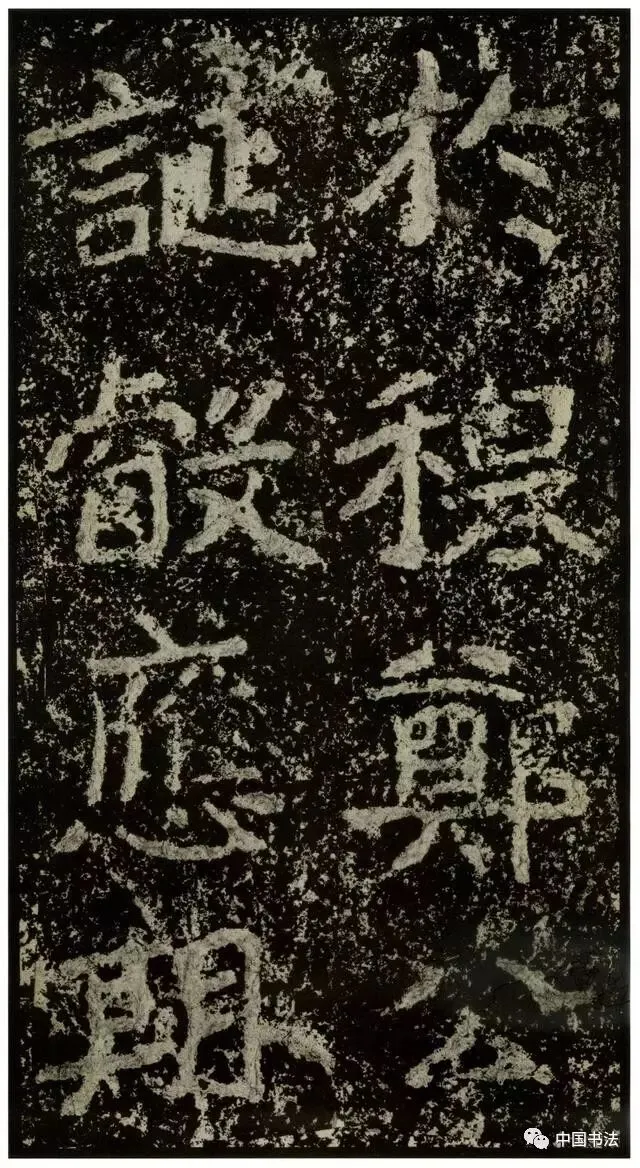 於穆鄭公
誕叡應期
中国书法